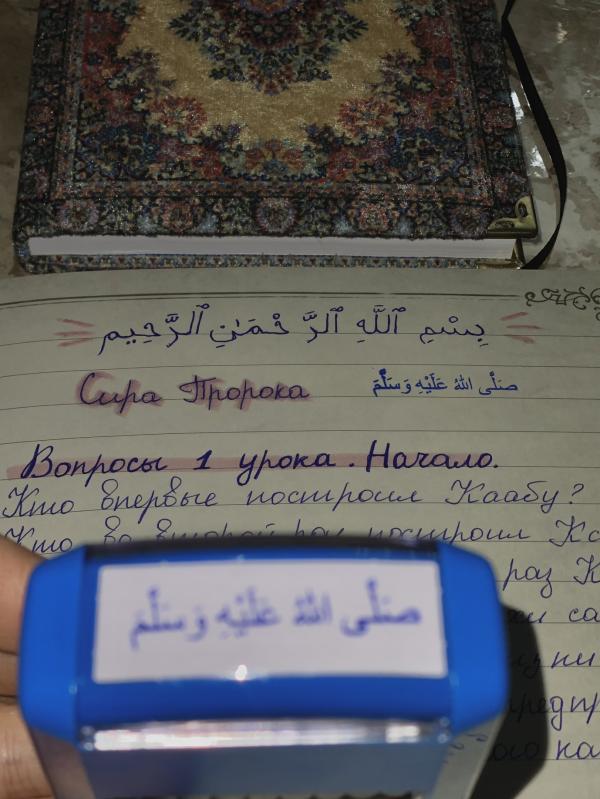 بِسْمِ ٱللَّهِ ٱلرَّحْمَـٰنِ ٱلرَّحِيم
Сира Пророка صَلَّى اللهُ عَلَيْهِ وَسَلَّمَ
Вопросы 1 урока. Начало.
Кто впервые построил Каабу?
Кто во второй раз построил
раз
صَلَّى اللهُ عَلَيْهِ وَسَلَّمَ